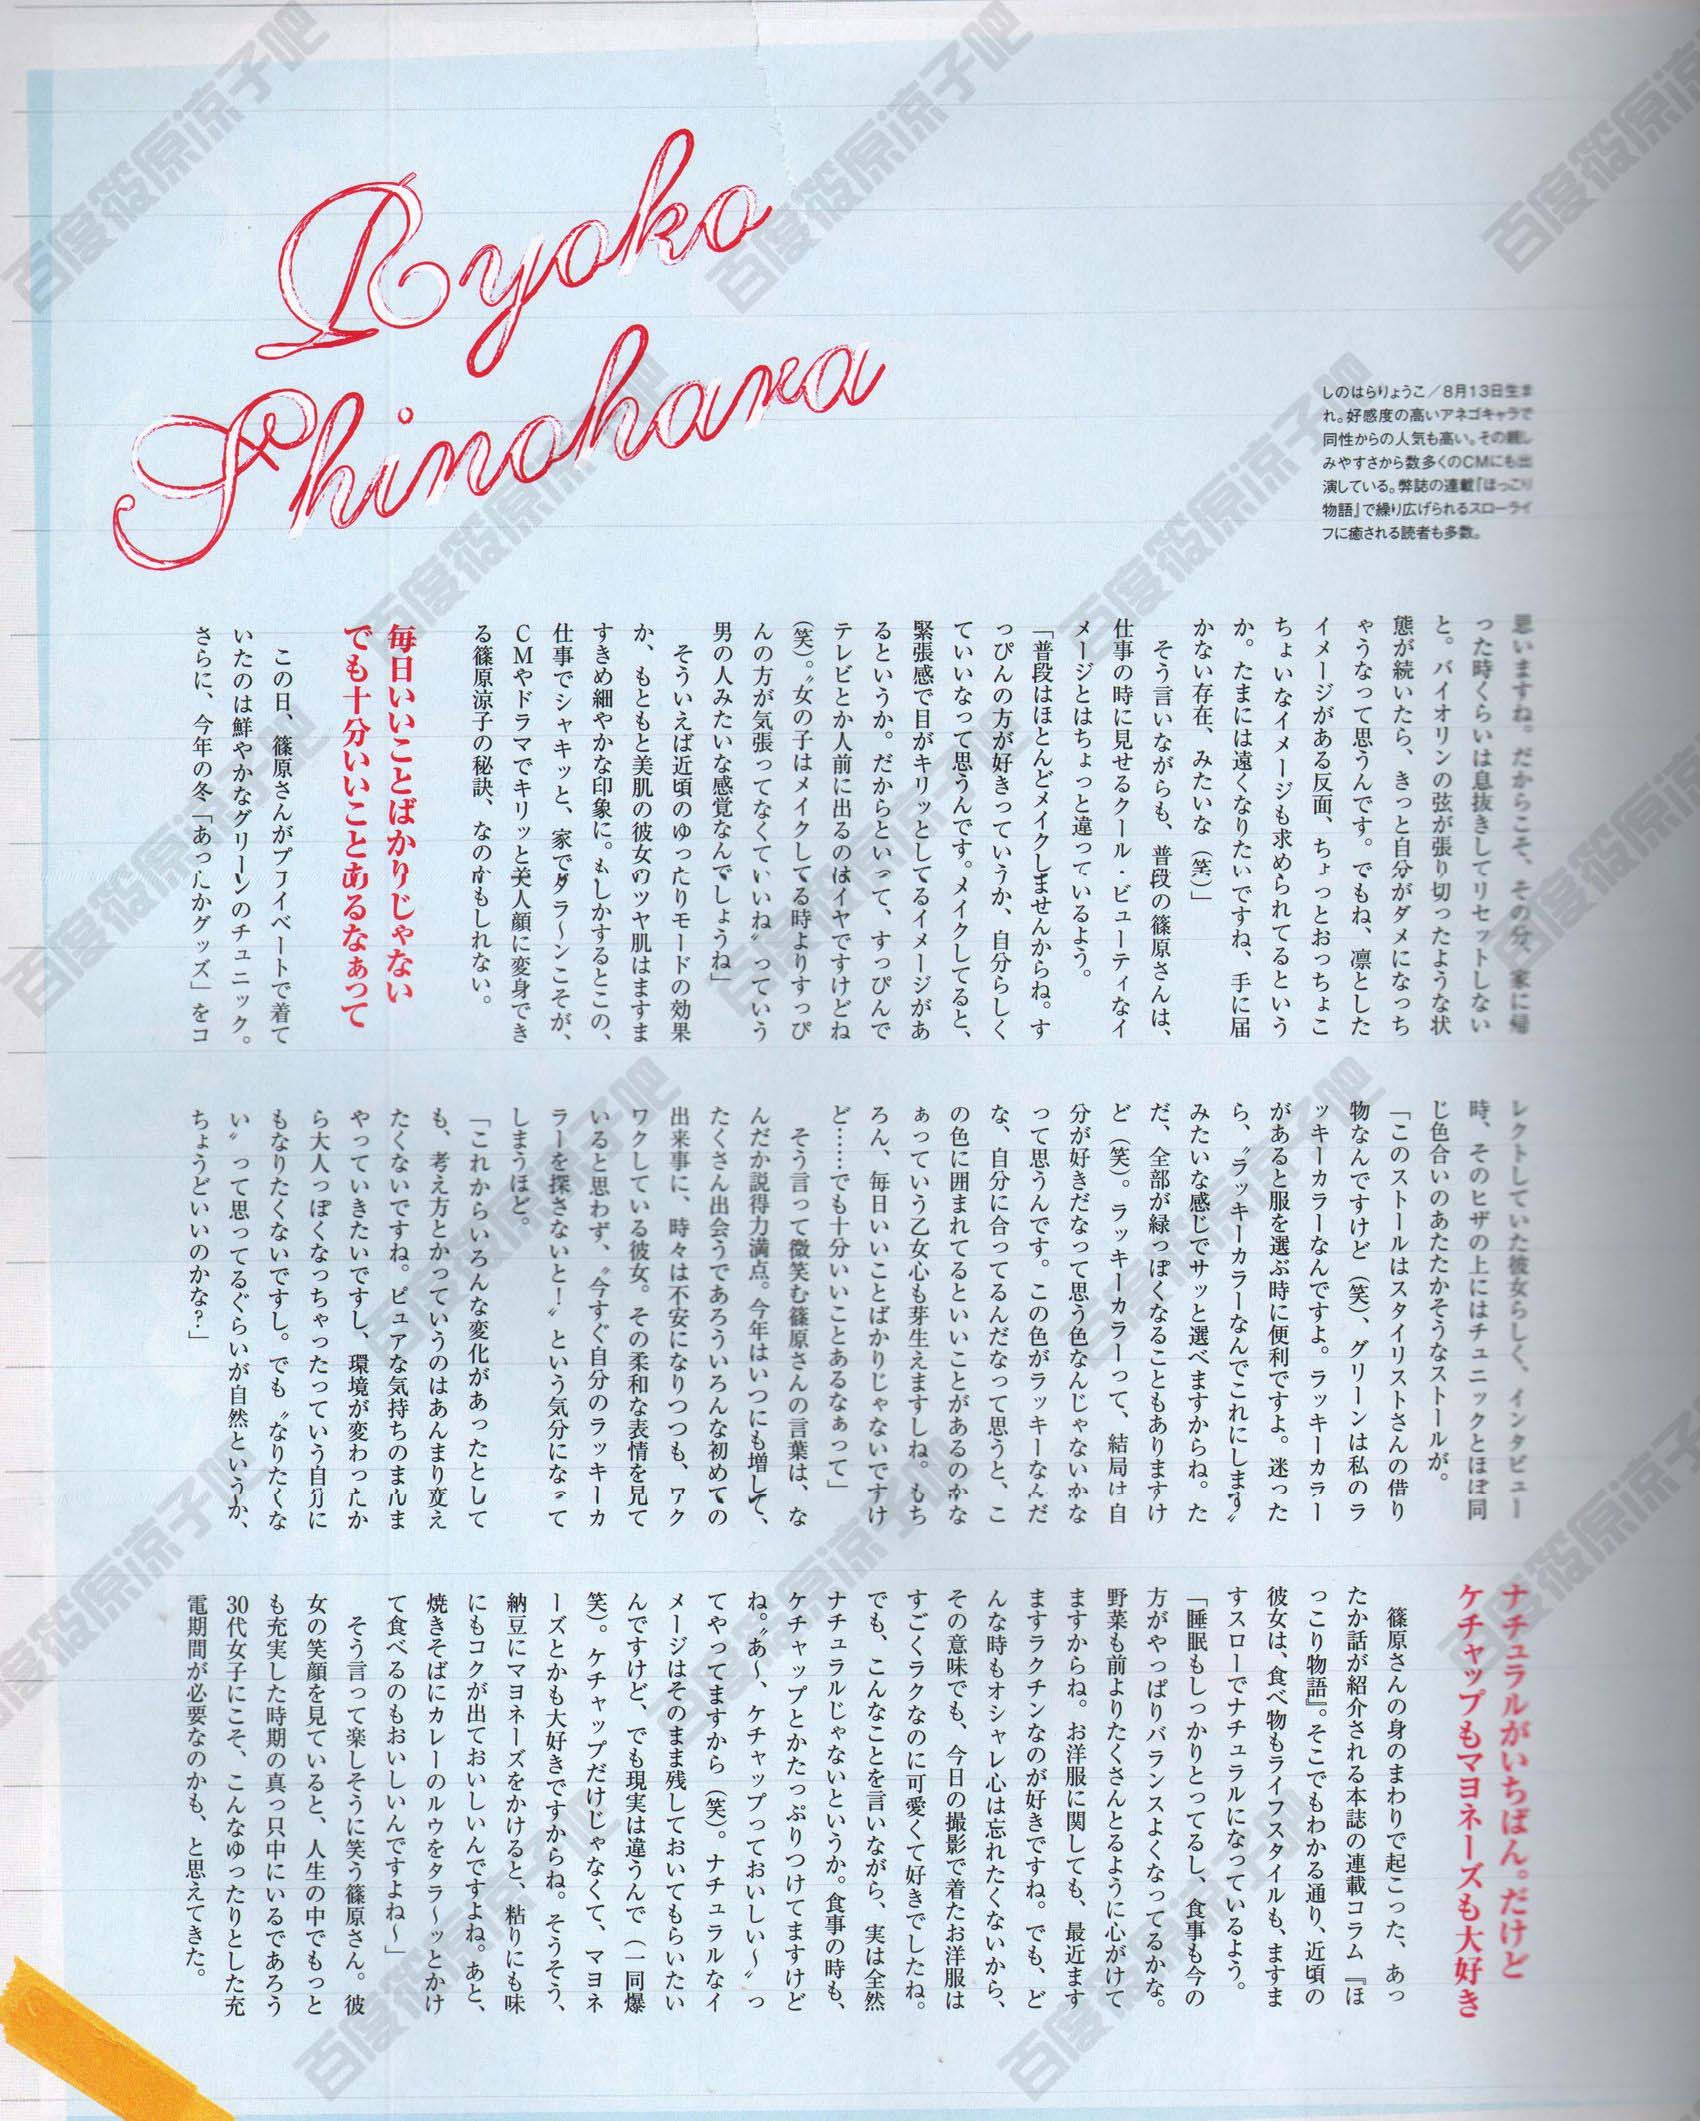 Ryoko
Shinohara
しのはらりょうこ／8月13日生ま
れ。好感度の高いアネゴキャラで
同性からの人気も高い。その親し
みやすさから数多くのCMにも出
演している。弊誌の連載『ほっこり
物語』で繰り広げられるスローライ
フに癒される読者も多数。
思いますね。だからこそ、その分、家に帰
った時くらいは息抜きしてリセットしない
と。バイオリンの弦が張り切ったような状
態が続いたら、きっと自分がダメになっち
ゃうなって思うんです。でもね、凛とした
イメージがある反面、ちょっとおっちょこ
ちょいなイメージも求められてるという
か。たまには遠くなりたいですね、手に届
かない存在、みたいな（笑）」
そう言いながらも、普段の篠原さんは、
仕事の時に見せるクール・ビューティなイ
メージとはちょっと違っているよう。
「普段はほとんどメイクしませんからね。す
っぴんの方が好きっていうか、自分らしく
ていいなって思うんです。メイクしてると、
緊張感で目がキリッとしてるイメージがあ
るというか。だからといって、すっぴんで
テレビとか人前に出るのはイヤですけどね
（笑）。〝女の子はメイクしてる時よりすっぴ
んの方が気張ってなくていいね〟っていう
男の人みたいな感覚なんでしょうね」
そういえば近頃のゆったりモードの効果
か、もともと美肌の彼女のツヤ肌はますま
すきめ細やかな印象に。もしかするとこの、
仕事でシャキッと、家でダラ〜ンこそが、
CMやドラマでキリッと美人顔に変身でき
る篠原涼子の秘訣、なのかもしれない。
毎日いいことばかりじゃない
でも十分いいことあるなぁって
この日、篠原さんがプライベートで着て
いたのは鮮やかなグリーンのチュニック。
さらに、今年の冬「あったかグッズ」をコ
レクトしていた彼女らしく、インタビュー
時、そのヒザの上にはチュニックとほぼ同
じ色合いのあたたかそうなストールが。
「このストールはスタイリストさんの借り
物なんですけど（笑）、グリーンは私のラ
ッキーカラーなんですよ。ラッキーカラー
があると服を選ぶ時に便利ですよ。迷った
ら、〝ラッキーカラーなんでこれにします〟
みたいな感じでサッと選べますからね。た
だ、全部が緑っぽくなることもありますけ
ど（笑）。ラッキーカラーって、結局は自
分が好きだなって思う色なんじゃないかな
って思うんです。この色がラッキーなんだ
な、自分に合ってるんだなって思うと、こ
の色に囲まれてるといいことがあるのかな
ぁっていう乙女心も芽生えますしね。もち
ろん、毎日いいことばかりじゃないですけ
ど……でも十分いいことあるなぁって」
そう言って微笑む篠原さんの言葉は、な
んだか説得力満点。今年はいつにも増して、
たくさん出会うであろういろんな初めての
出来事に、時々は不安になりつつも、ワク
ワクしている彼女。その柔和な表情を見て
いると思わず、〝今すぐ自分のラッキーカ
ラーを探さないと！〟という気分になって
しまうほど。
「これからいろんな変化があったとして
も、考え方とかっていうのはあんまり変え
たくないですね。ピュアな気持ちのまんま
やっていきたいですし、環境が変わったか
ら大人っぽくなっちゃったっていう自分に
もなりたくないですし。でも〝なりたくな
い〟って思ってるぐらいが自然というか、
ちょうどいいのかな？」
ナチュラルがいちばん。だけど
ケチャップもマヨネーズも大好き
篠原さんの身のまわりで起こった、あっ
たか話が紹介される本誌の連載コラム『ほ
っこり物語』。そこでもわかる通り、近頃の
彼女は、食べ物もライフスタイルも、ますま
すスローでナチュラルになっているよう。
「睡眠もしっかりとってるし、食事も今の
方がやっぱりバランスよくなってるかな。
野菜も前よりたくさんとるように心がけて
ますからね。お洋服に関しても、最近ます
ますラクチンなのが好きですね。でも、ど
んな時もオシャレ心は忘れたくないから、
その意味でも、今日の撮影で着たお洋服は
すごくラクなのに可愛くて好きでしたね。
でも、こんなことを言いながら、実は全然
ナチュラルじゃないというか。食事の時も、
ケチャップとかたっぷりつけてますけど
ね。〝あ〜、ケチャップっておいしい〜〟っ
てやってますから（笑）。ナチュラルなイ
メージはそのまま残しておいてもらいたい
んですけど、でも現実は違うんで（一同爆
笑）。ケチャップだけじゃなくて、マヨネ
ーズとかも大好きですからね。そうそう、
納豆にマヨネーズをかけると、粘りにも味
にもコクが出ておいしいんですよね。あと、
焼きそばにカレーのルウをタラ〜ッとかけ
て食べるのもおいしいんですよね〜」
そう言って楽しそうに笑う篠原さん。彼
女の笑顔を見ていると、人生の中でもっと
も充実した時期の真っ只中にいるであろう
30代女子にこそ、こんなゆったりとした充
電期間が必要なのかも、と思えてきた。
百度筱原涼子吧